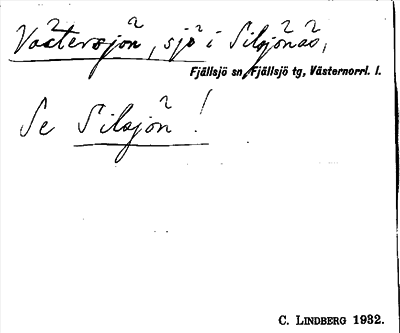 Västersjön, sjö i Silsjönäs,
Fjällsjö sn, Fjällsjö tg, Västernorrl. l.
Se Silsjön!
C. LINDBERG 1932.